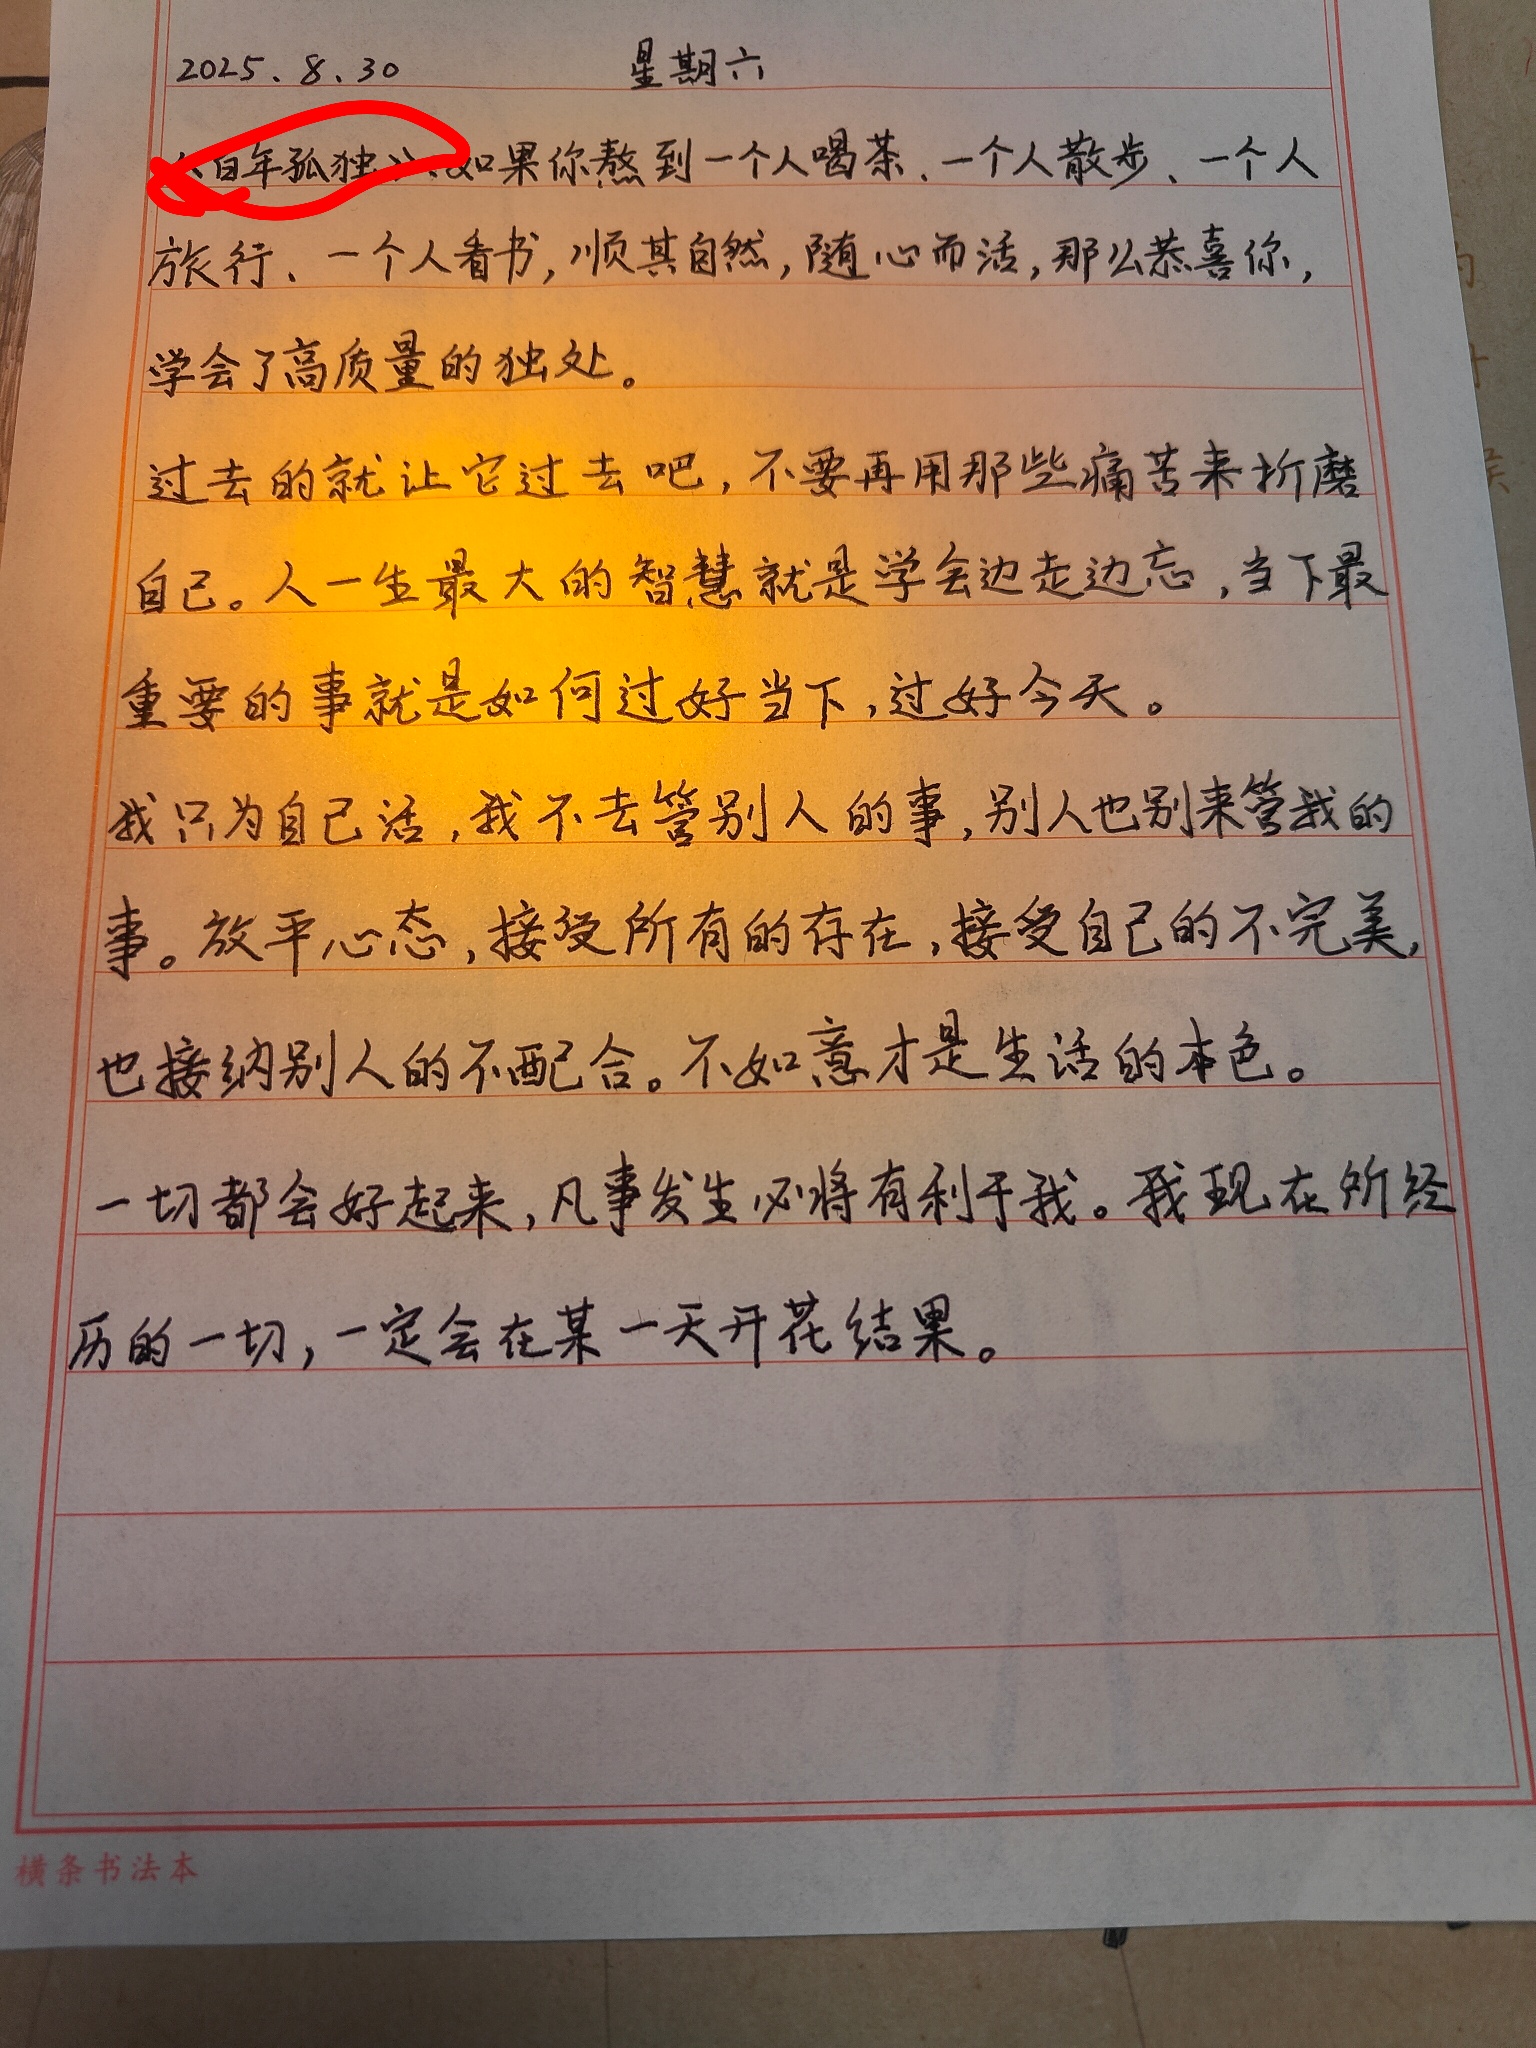 2025.8.30 星期六
《百年孤独》:如果你熬到一个人喝茶、一个人散步、一个人
旅行、一个人看书,顺其自然,随心而活,那么恭喜你,
学会了高质量的独处。
过去的就让它过去吧,不要再用那些痛苦来折磨
自己。人一生最大的智慧就是学会边走边忘,当下最
重要的事就是如何过好当下,过好今天。
我只为自己活,我不去管别人的事,别人也别来管我的
事。放平心态,接受所有的存在,接受自己的不完美,
也接纳别人的不配合。不如意才是生活的本色。
一切都会好起来,凡事发生必将有利于我。我现在所经
历的一切,一定会在某一天开花结果。
横条书法本